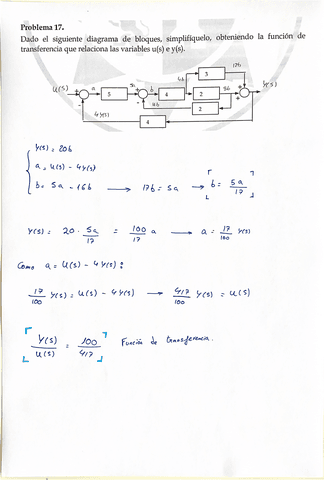 Problema 17.
Dado el siguiente diagrama de bloques, simplifíquelo, obteniendo la función de
transferencia que relaciona las variables u(s) e y(s).
12b
3
4b
U(s) a 5 5a b 4 2 8b Y(s)
16b 2
4Y(s)
4
Y(s) = 20b
a = U(s) - 4Y(s)
b = 5a - 16b → 17b = 5a → b = 5a/17
Y(s) = 20 · 5a/17 = 100/17 a → a = 17/100 Y(s)
Como a = U(s) - 4Y(s) :
17/100 Y(s) = U(s) - 4Y(s) → 417/100 Y(s) = U(s)
Y(s)/U(s) = 100/417 Función de transferencia.